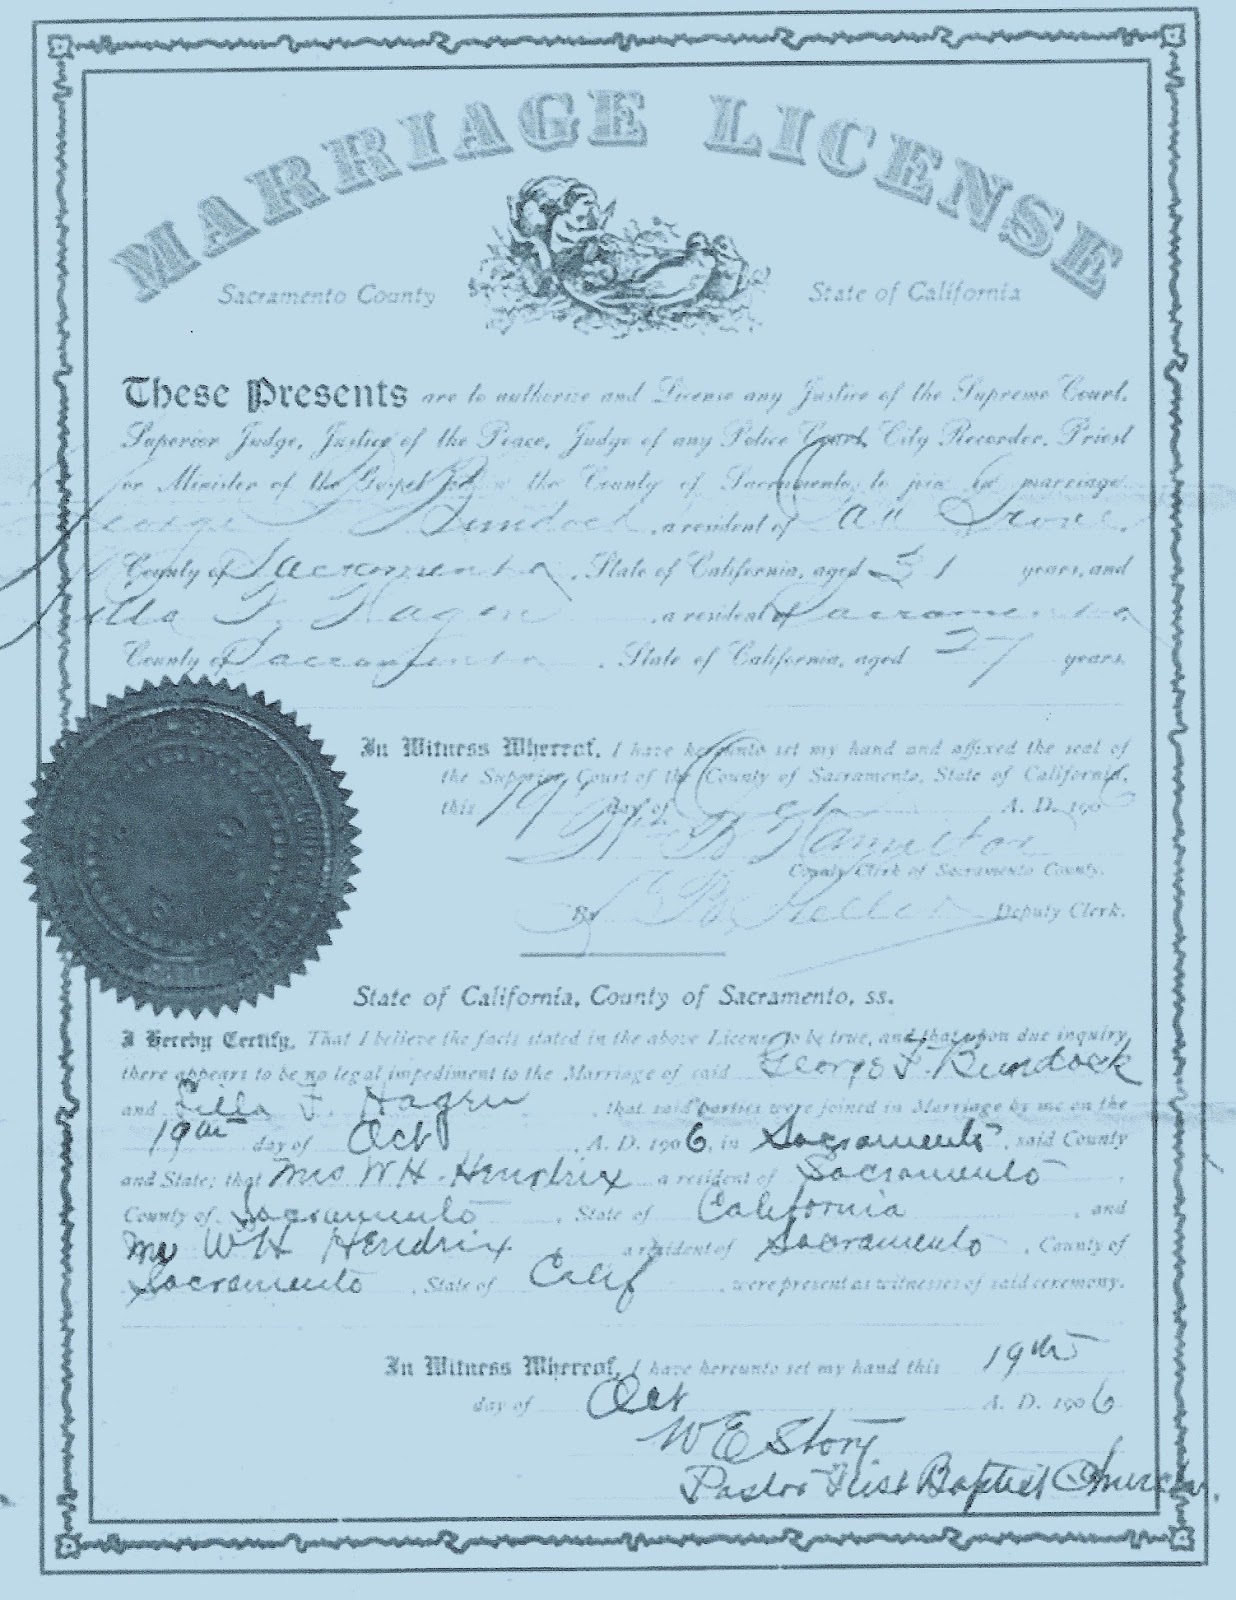 MARRIAGE LICENSE
Sacramento County State of California
These Presents are to authorize and License any Justice of the Supreme Court,
Superior Judge, Justice of the Peace, Judge of any Police Court, City Recorder, Priest
or Minister of the Gospel the County of Sacramento, to join in marriage
George F Burdock, a resident of Oak Grove,
County of Sacramento, State of California, aged 31 years, and
Lilla F. Hagen, a resident of Sacramento,
County of Sacramento, State of California, aged 27 years.
In Witness Whereof, I have hereunto set my hand and affixed the seal of
the Superior Court of the County of Sacramento, State of California,
this 19th day of Oct A. D. 1906
W B Hamilton
County Clerk of Sacramento County.
By Deputy Clerk.
State of California, County of Sacramento, ss.
I Hereby Certify, That I believe the facts stated in the above License to be true, and that upon due inquiry
there appears to be no legal impediment to the Marriage of said George F. Burdock
and Lilla F. Hagen, that said parties were joined in Marriage by me on the
19th day of Oct, A. D. 1906, in Sacramento, said County
and State; that Mrs W H. Hendrix a resident of Sacramento,
County of Sacramento, State of California, and
Mr W H Hendrix a resident of Sacramento, County of
Sacramento, State of Calif, were present as witnesses of said ceremony.
In Witness Whereof, I have hereunto set my hand this 19th
day of Oct A. D. 1906
W E Story
Pastor First Baptist Church.